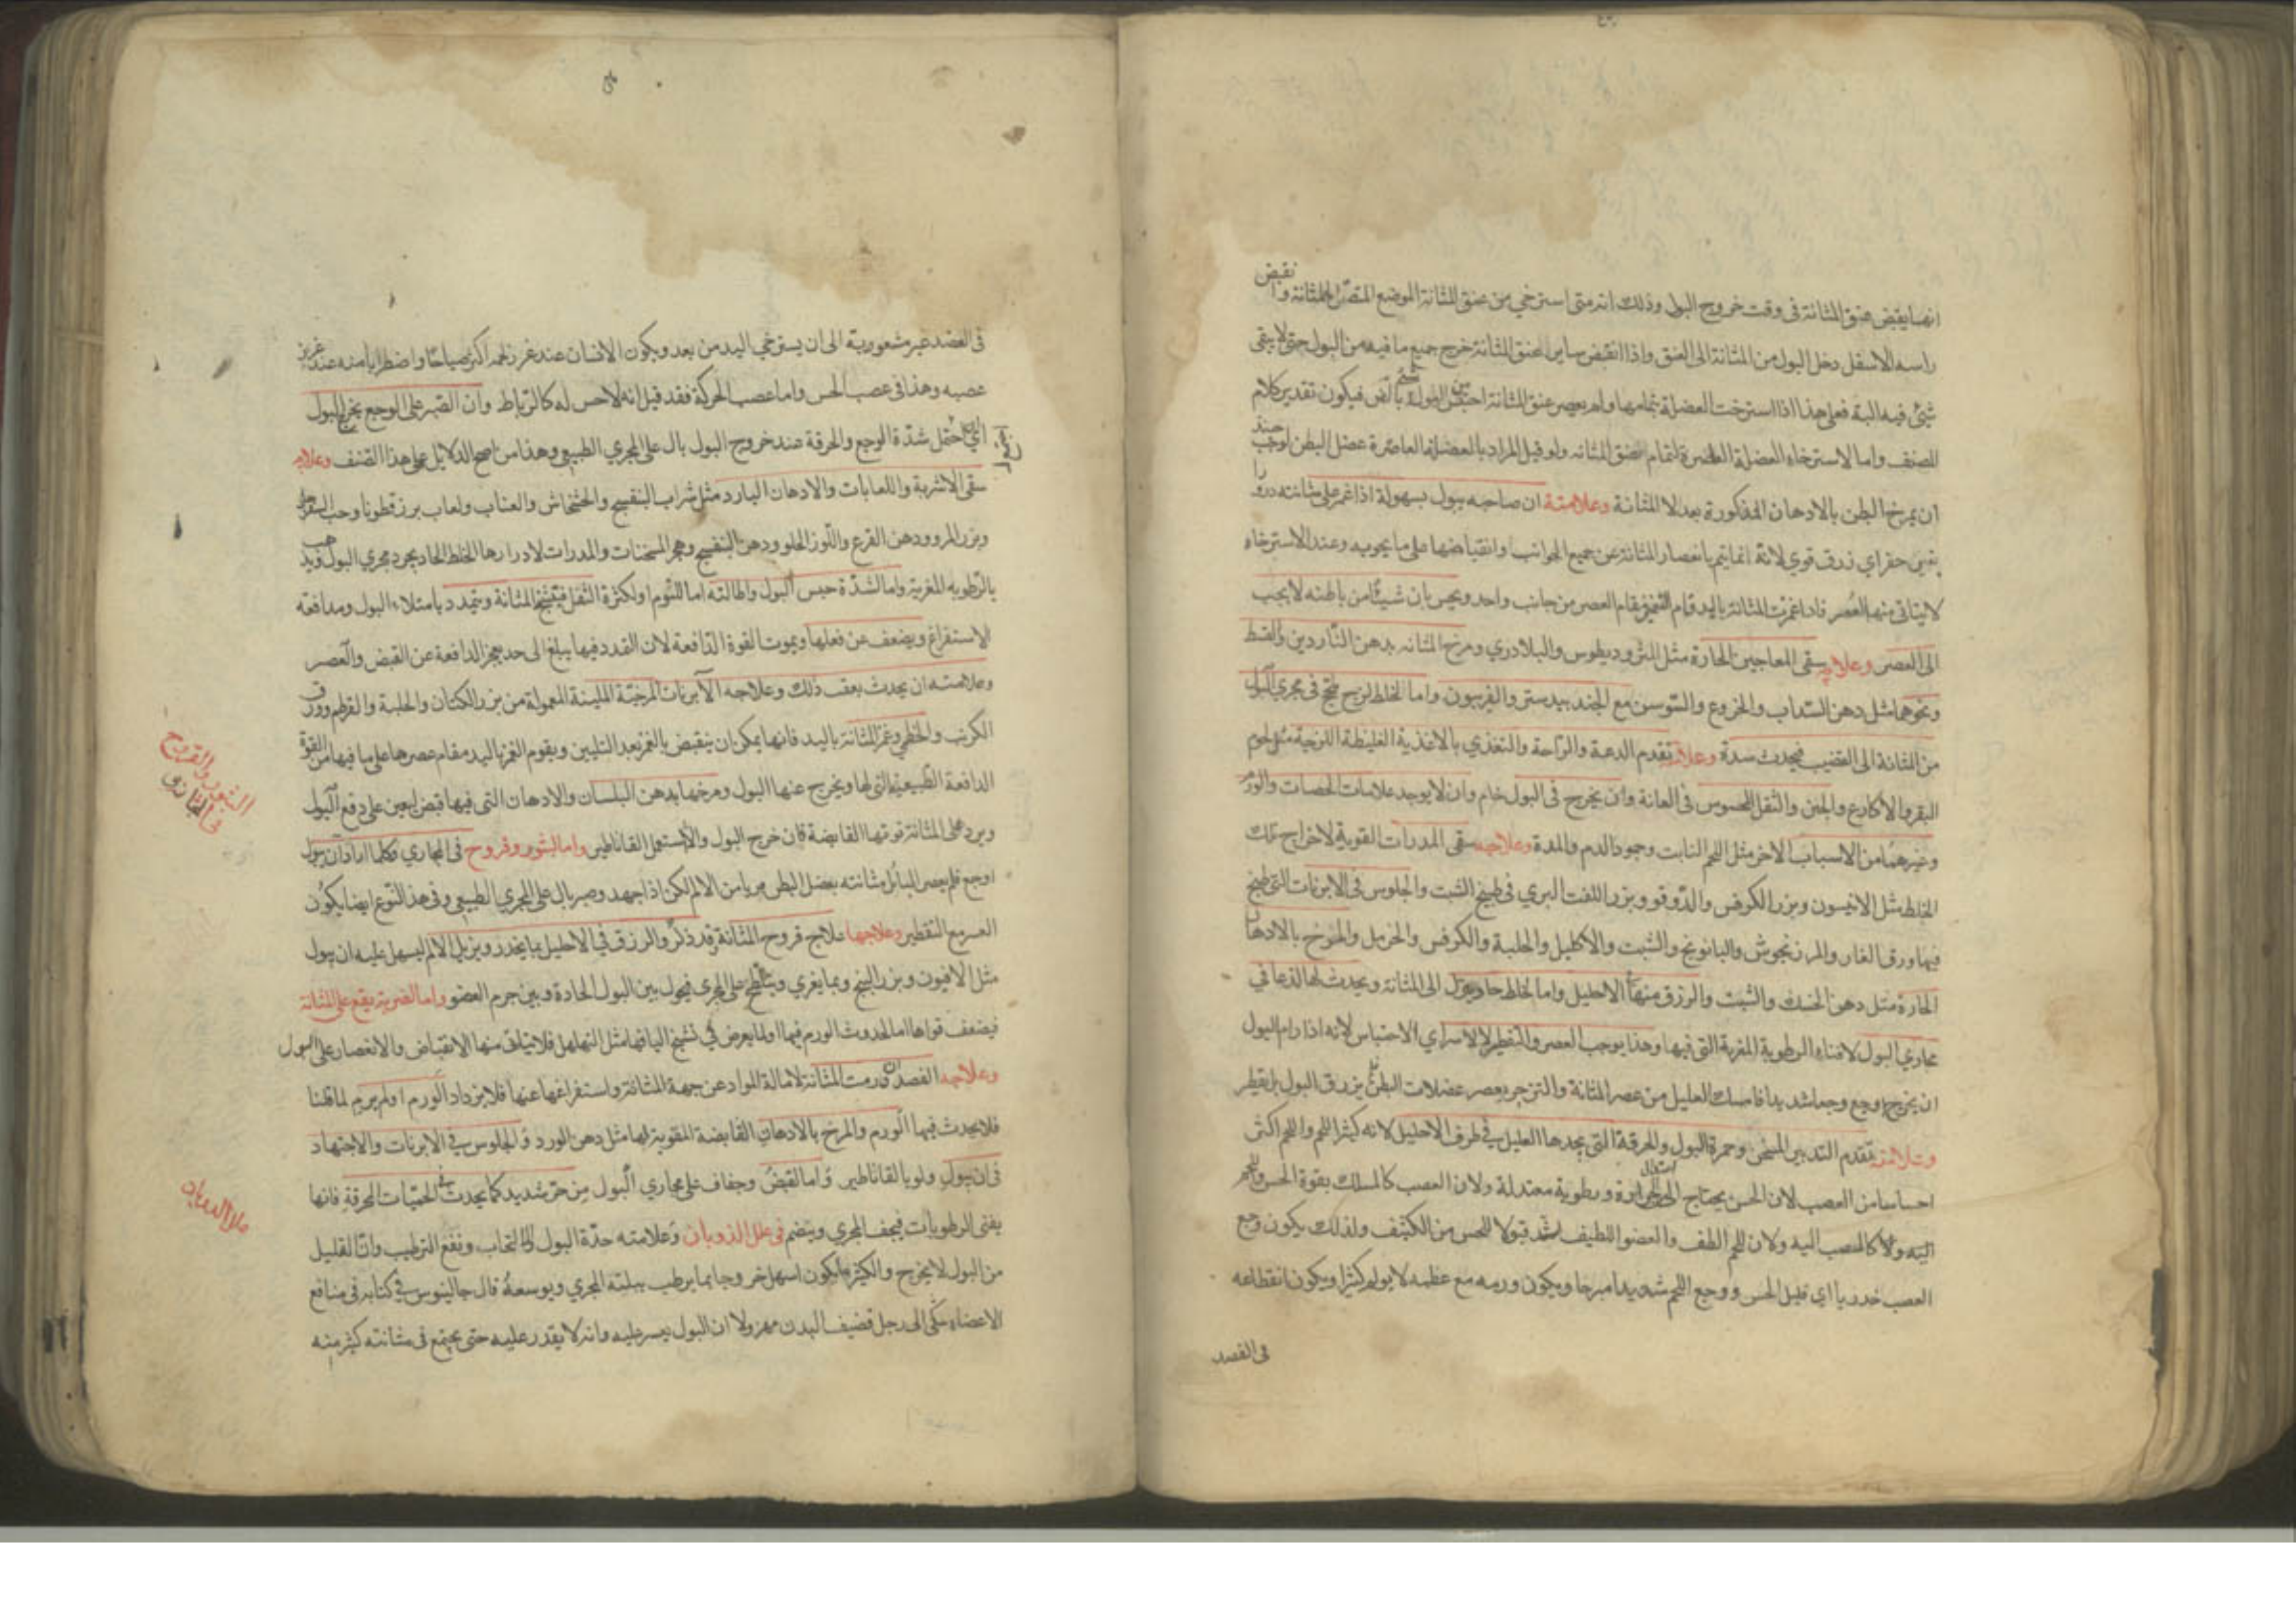 انها يقبض عنق المثانة فى وقت خروج البول وذلك انه متى استرخي من عنق المثانة الموضع المتصل بالمثانة وانقبض
راسه الاسفل دخل البول من المثانة الى العنق واذا انقبض ساير عنق المثانة خرج جميع ما فيه من البول حتى لا يبقى
شئ فيه البتة فعلى هذا اذا استرخت العضلة بتمامها ولم يعصر عنق المثانة احتبس البول فيكون تقدير كلام
المصنف واما لاسترخاء العضلة العاصرة لفم عنق المثانه ولو قيل المراد بالعضلة العاصرة عضل البطن لوجب
ان يمرخ البطن بالادهان المذكورة بدلا المثانة وعلامتة ان صاحبه يبول بسهولة اذا غمر على مثانته
بغير حفز اي زرق قوي لانه انما يتم بانعصار المثانة عن جميع الجوانب وانقباضها على ما يحويه وعند الاسترخاء
لا يتاتى منها العصر فاذا غمزت المثانة باليد قام الغمز مقام العصر من جانب واحد ويحس بان شيئًا من باطنه لا يجيب
الى العصر وعلاجه سقى المعاجين الحارة مثل المثروديطوس والبلادري ومرخ المثانه بدهن الناردين والقسط
ونحوهما مثل دهن السداب والخروع والسوسن مع الجندبيدستر والفربيون واما لخلط لزج لحج فى مجري البول
من المثانة الى القضيب فيحدث سدة وعلامته تقدم الدعة والراحة والتغذي بالاغذية الغليظة اللزجة مثل لحوم
البقر والاكارع والجبن والثقل المحسوس فى العانة وان يخرج فى البول خام وان لا يوجد علامات الحصات والورم
وغيرهما من الاسباب الاخر مثل اللحم النابت وجمود الدم والمدة وعلاجه سقى المدرات القوية لاخراج تلك
الخلط مثل الانيسون وبزر الكرفس والدوقو وبزر اللفت البري فى طبيخ الشبت والجلوس فى الابزنات التى طبخ
فيها ورق الغار والمرزنجوش والبابونج والشبت والاكليل والحلبة والكرفس والحرمل والمروخ بالادهان
الحارة مثل دهن الحسك والشبت والزرق منها فى الاحليل واما لخلط حاد ينزل الى المثانة ويحدث لها لذعا في
مجاري البول لافناء الرطوبة المغرية التى فيها وهذا يوجب العصر والتقطير لا الاسر اي الاحتباس لانه اذا رام البول
ان يخرج اوجع وجعا شديدا فامسك العليل من عصر المثانة والتزحر بعصر عضلات البطن بزرق البول بل يقطر
وعلامته تقدم التدبير المسخن وحمرة البول والحرقة التى يجدها العليل في طرف الاحليل لانه كثير اللحم واللحم اكثر
احساسا من العصب لان الحس يحتاج الى حرارة ورطوبة معتدلة ولان العصب كالمسلك بقوة الحس واللحم
اليه ولا كالعصب اليه ولان اللحم الطف والعضو اللطيف اشد قبولا للحس من الكثيف ولذلك يكون وجع
العصب خدريا اي قليل الحس ووجع اللحم شديدا مبرحا ويكون ورمه مع عظمه لا يولم كثيرا ويكون انقطاعه
فى الفصد
فى الفصد غير مشعور به الى ان يسترخي اليد من بعد ويكون الانسان عند غرز لحمه اكثر صياحا واضطرابا منه عند غرز
عصبه وهذا فى عصب الحس واما عصب الحركة فقد قيل انه لا حس له كالرباط وان الصبر على الوجع يخرج البول
اي احتمل شدة الوجع والحرقة عند خروج البول بال على المجري الطبيعي وهذا من اصح الدلايل على هذا الصنف وعلاجه
سقى الاشربة واللعابات والادهان البارد مثل شراب البنفسج والخشخاش والعناب ولعاب بزر قطونا وحب السفرجل
وبزر المرو ودهن القرع واللوز الحلو ودهن البنفسج وهجر المسخنات والمدرات لادرارها الخلط الحاد يجرد مجري البول
بالرطوبه المغرية واما لشدة حبس البول واطالته اما للنوم او لكثرة الثقل فيتشنج المثانة ويتمدد بامتلاء البول ومدافعة
الاستفراغ ويضعف عن فعلها ويموت القوة الدافعة لان التمدد فيها يبلغ الى حد يعجز الدافعة عن القبض والعصر
وعلامته ان يحدث بعقب ذلك وعلاجه الابزنات المرخية الملينة المعمولة من بزر الكتان والحلبة والقرطم وورق
الكرنب والخطمي وغمز المثانة باليد فانها يمكن ان ينقبض بالغمز بعد التليين ويقوم الغمز باليد مقام عصرها على ما فيها من القوة
الدافعة الطبيعية التى لها ويخرج عنها البول ومرخها بدهن البلسان والادهان التى فيها قبض ليعين على دفع البول
ويرد على المثانة قوتها القابضة فان خرج البول والا استعمل القاثاطير واما لبثور وقروح فى المجاري فكلما اراد ان يبول
اوجع فلم يعصر البائل مثانته بعضل البطن هربا من الالم لكن اذا جهد وصبر بال على المجري الطبيعي وفى هذا النوع ايضا يكون
العسر مع التقطير وعلاجها علاج قروح المثانة وقد ذكر والزرق في الاحليل بما يخدر ويزيل الالم ليسهل عليه ان يبول
مثل الافيون وبزر البنج وبما يغري على المجري فيحول بين البول الحادة وبين جرم العضو واما لضربة يقع على المثانة
فيضعف قواها اما لحدوث الورم فيها او لما يعرض في نسج اليافها مثل التهلهل فلا يتاتى منها الانقباض والانعصار على البول
وعلاجه الفصد ان ورمت المثانة لامالة المواد عن جهة المثانة واستفراغها عنها فلا يزداد الورم او لم يرم لما قلنا
فلا يحدث فيها الورم والمرخ بالادهان القابضة المقوية لها مثل دهن الورد والجلوس في الابزنات والاجتهاد
فى ان يبول ولو بالقاثاطير واما لقبض وجفاف على مجاري البول من حر شديد كما يحدث في الحميات المحرقة فانها
يفنى الرطوبات فيجف المجري وينضم فى علل الذوبان وعلامته حدة البول والالتهاب ونفع الترطيب وان القليل
من البول لا يخرج والكثير يكون اسهل خروجا بما يرطب ببلته المجري ويوسعه قال جالينوس في كتابه فى منافع
الاعضاء شكى الى رجل قضيف البدن مهزولا ان البول يعسر عليه وانه لا يقدر عليه حتى يجتمع فى مثانته كثير منه
البثور والقروح
فى المجارى
علل الذوبان